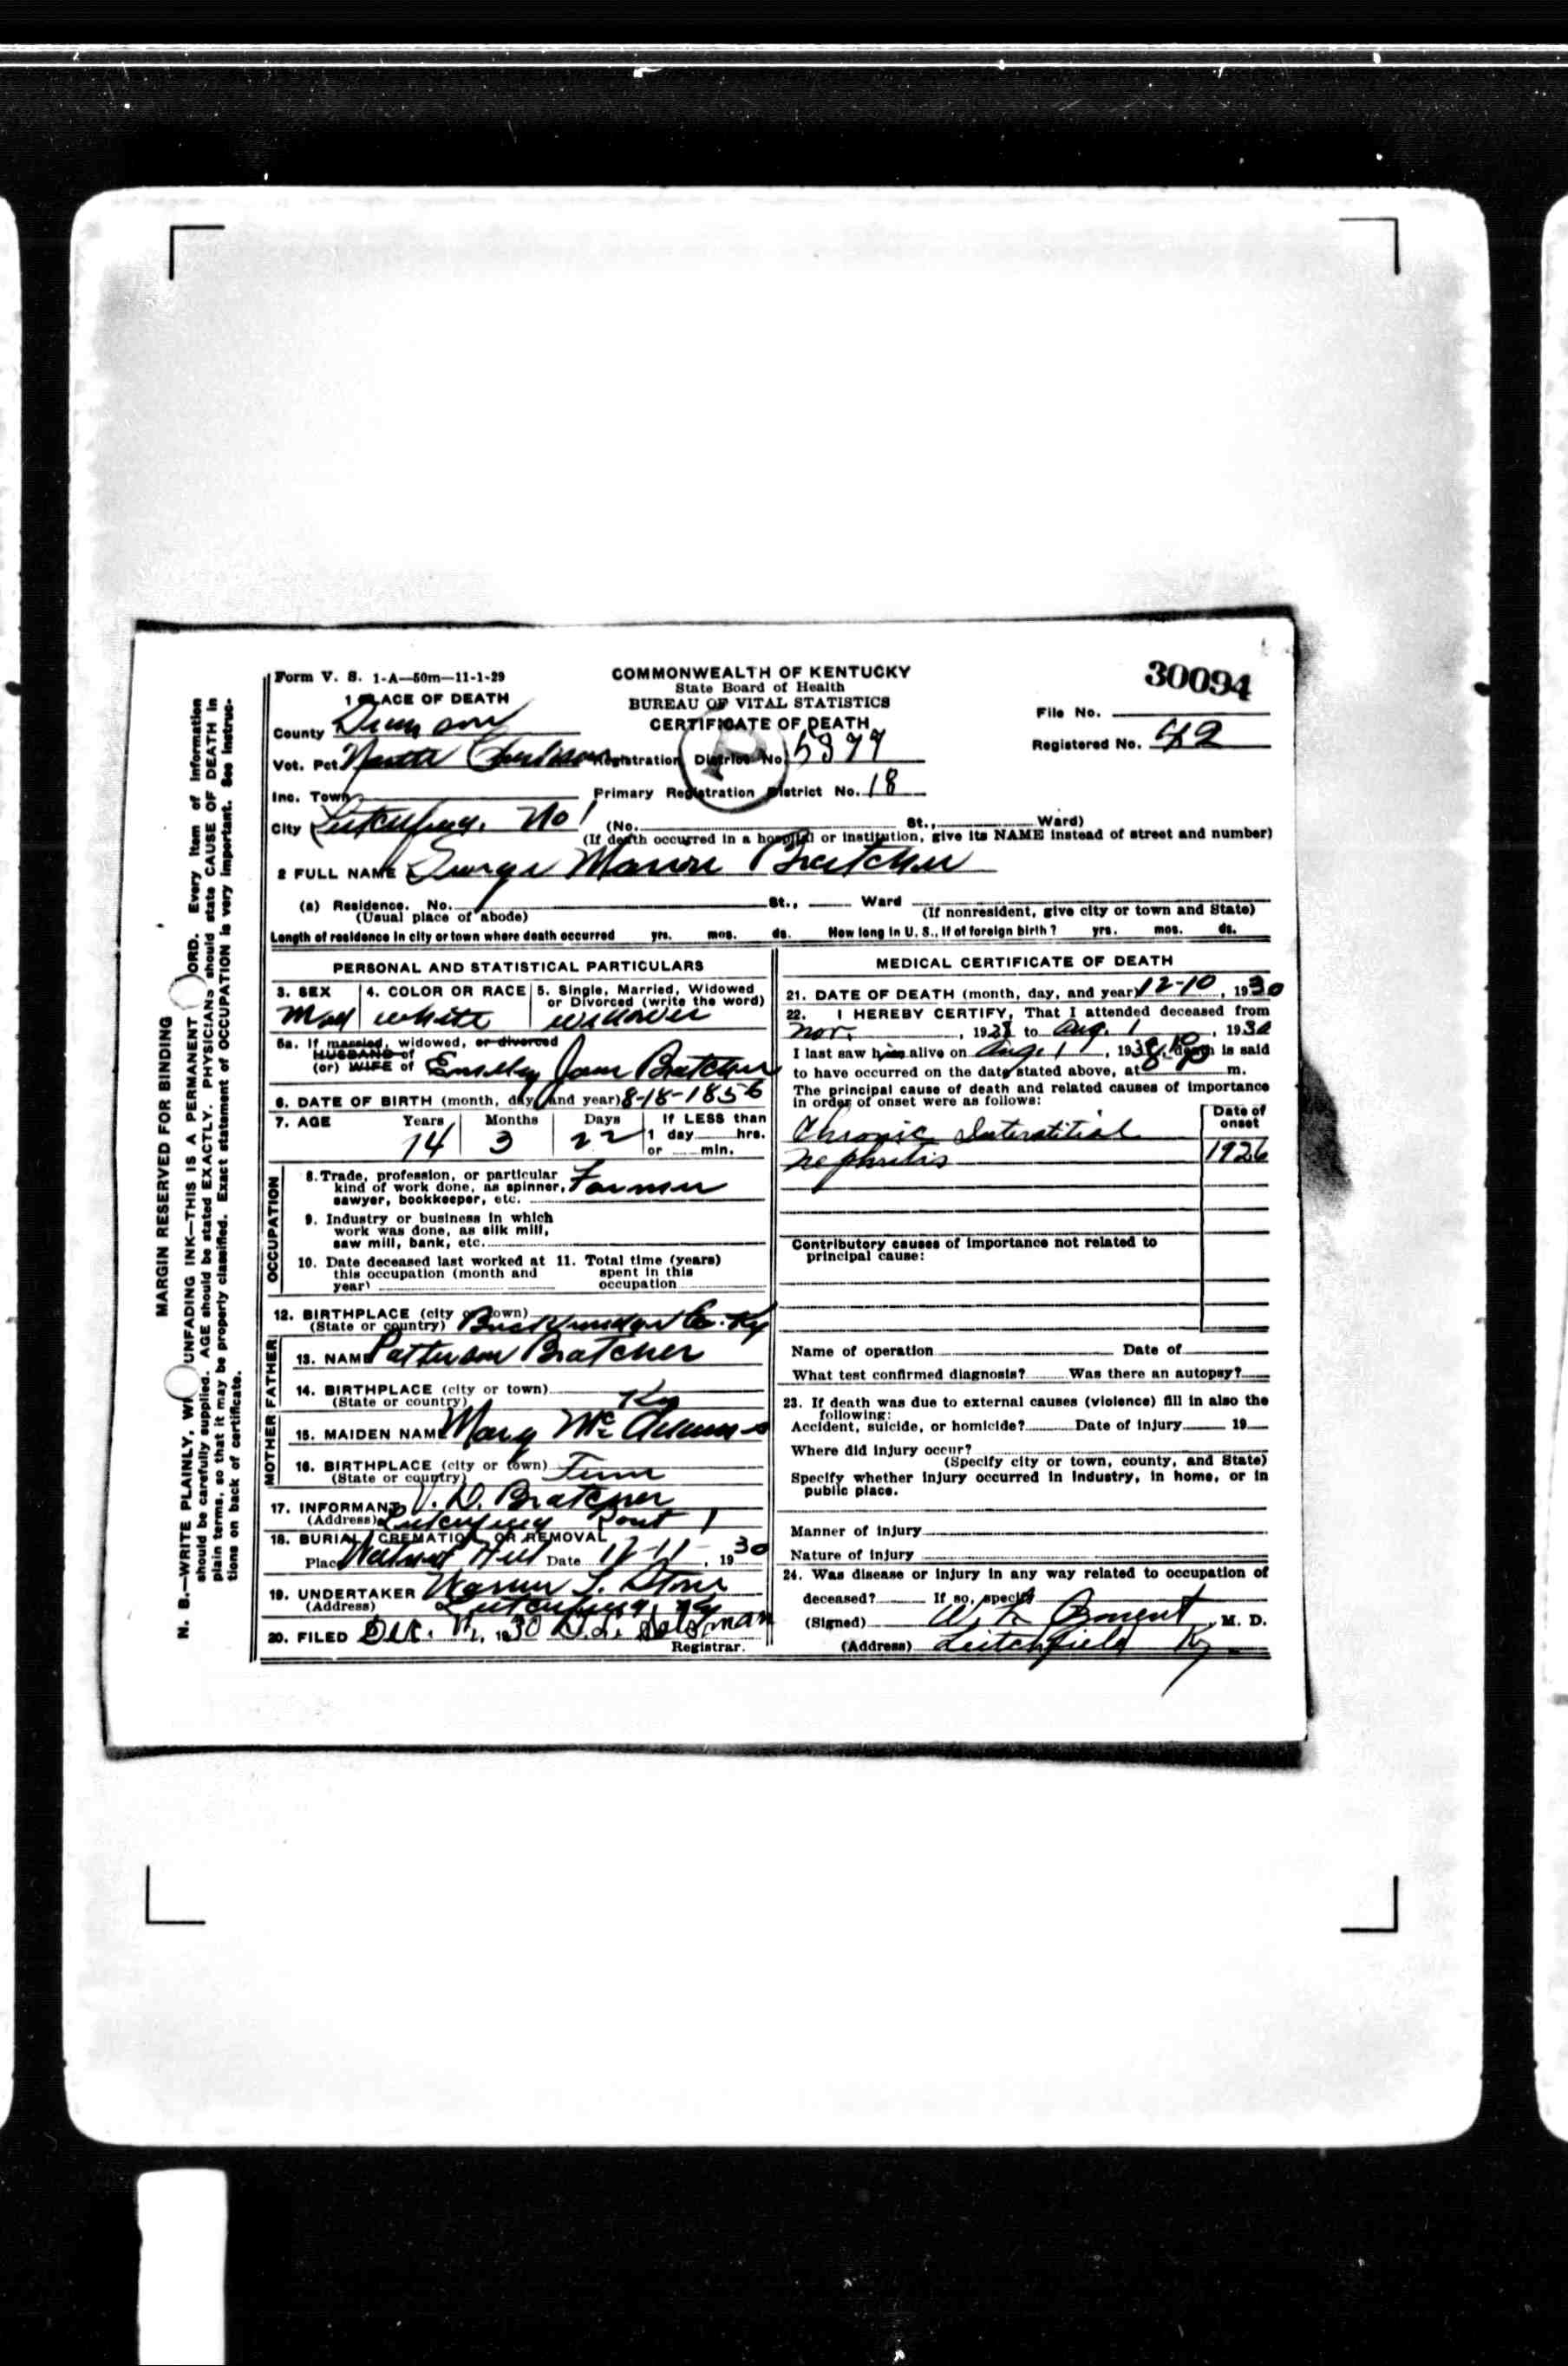 Form V. S. 1-A—50m—11-1-29
COMMONWEALTH OF KENTUCKY
State Board of Health
BUREAU OF VITAL STATISTICS
CERTIFICATE OF DEATH
30094
File No.
Registered No. 42
1 PLACE OF DEATH
County
Vot. Pct. Registration District No.
Inc. Town Primary Registration District No. 18
City No 1 (No. St., Ward)
(If death occurred in a hospital or institution, give its NAME instead of street and number)
2 FULL NAME George Marion Bratcher
(a) Residence. No. St., Ward
(Usual place of abode) (If nonresident, give city or town and State)
Length of residence in city or town where death occurred yrs. mos. ds. How long in U. S., if of foreign birth? yrs. mos. ds.
PERSONAL AND STATISTICAL PARTICULARS
3. SEX 4. COLOR OR RACE 5. Single, Married, Widowed
or Divorced (write the word)
white
5a. If married, widowed, or divorced
HUSBAND of
(or) WIFE of Jane Bratcher
6. DATE OF BIRTH (month, day and year) 8-18-1856
7. AGE Years Months Days If LESS than
3 22 1 day hrs.
or min.
OCCUPATION
8. Trade, profession, or particular
kind of work done, as spinner, Farmer
sawyer, bookkeeper, etc.
9. Industry or business in which
work was done, as silk mill,
saw mill, bank, etc.
10. Date deceased last worked at 11. Total time (years)
this occupation (month and spent in this
year) occupation
12. BIRTHPLACE (city or town)
(State or country) Co. Ky
FATHER
13. NAME Patterson Bratcher
14. BIRTHPLACE (city or town)
(State or country) Ky
MOTHER
15. MAIDEN NAME Mary
16. BIRTHPLACE (city or town) Tenn
(State or country)
17. INFORMANT V. D. Bratcher
(Address) Rout 1
18. BURIAL, CREMATION OR REMOVAL
Place Walnut Hill Date 12-11-, 1930
19. UNDERTAKER
(Address) Ky
20. FILED Dec. 1930
Registrar.
MEDICAL CERTIFICATE OF DEATH
21. DATE OF DEATH (month, day, and year) 12-10, 1930
22. I HEREBY CERTIFY, That I attended deceased from
Nov. to Aug. 1, 1930
I last saw him alive on Aug. 1, death is said
to have occurred on the date stated above, at m.
The principal cause of death and related causes of importance
in order of onset were as follows:
Date of
onset
Chronic Interstitial
nephritis 1926
Contributory causes of importance not related to
principal cause:
Name of operation Date of
What test confirmed diagnosis? Was there an autopsy?
23. If death was due to external causes (violence) fill in also the
following:
Accident, suicide, or homicide? Date of injury 19
Where did injury occur?
(Specify city or town, county, and State)
Specify whether injury occurred in industry, in home, or in
public place.
Manner of injury
Nature of injury
24. Was disease or injury in any way related to occupation of
deceased? If so, specify
(Signed) M. D.
(Address) Leitchfield Ky
MARGIN RESERVED FOR BINDING
N. B.—WRITE PLAINLY, UNFADING INK—THIS IS A PERMANENT Every item of information
should be carefully supplied. AGE should be stated EXACTLY. PHYSICIANS should state CAUSE OF DEATH in
plain terms, so that it may be properly classified. Exact statement of OCCUPATION is very important. See instruc-
tions on back of certificate.